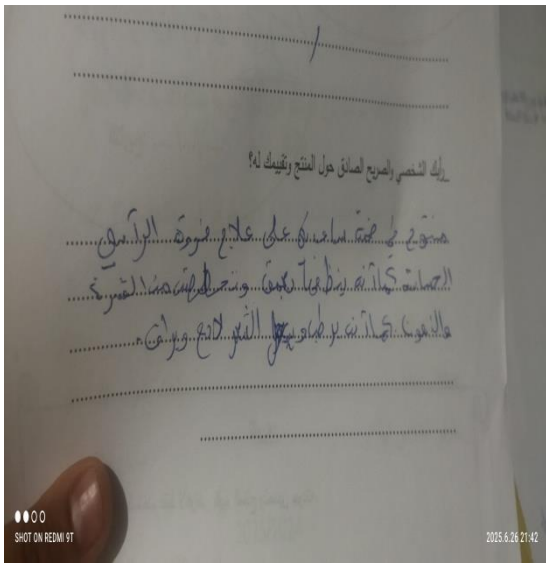 /
_رأيك الشخصي والصريح الصادق حول المنتج وتقييمك له؟
منتوج في قمة ساعدني على علاج فروة الرأس
الحساسة كما أنه ينظفها بعمق وتخلصت من القشرة
والدهون كما أنه يرطب ويجعل الشعر لامع وبراق.
SHOT ON REDMI 9T
2025.6.26 21:42